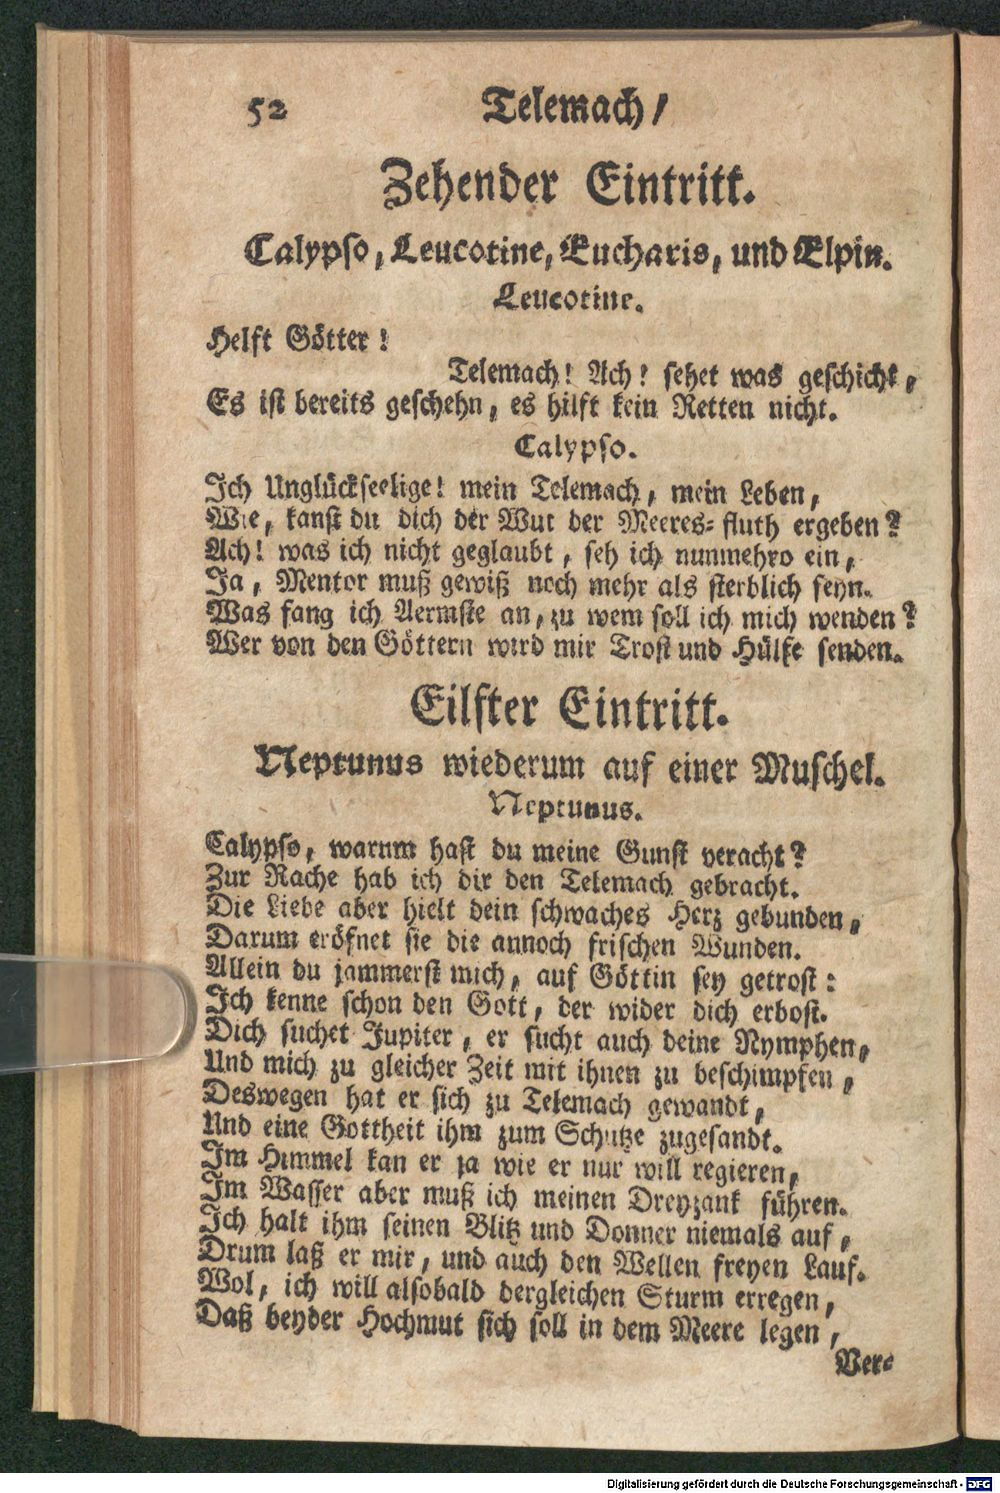 52 Telemach /
Zehender Eintritt.
Calypso, Leucotine, Eucharis, und Elpin.
Leucotine.
Helft Götter !
Telemach! Ach! sehet was geschicht,
Es ist bereits geschehn, es hilft kein Retten nicht.
Calypso.
Ich Unglückseelige! mein Telemach, mein Leben,
Wie, kanst du dich der Wut der Meeres-fluth ergeben?
Ach! was ich nicht geglaubt, seh ich nunmehro ein,
Ja, Mentor muß gewiß noch mehr als sterblich seyn.
Was fang ich Aermste an, zu wem soll ich mich wenden?
Wer von den Göttern wird mir Trost und Hülfe senden.
Eilfter Eintritt.
Neptunus wiederum auf einer Muschel.
Neptunus.
Calypso, warum hast du meine Gunst veracht?
Zur Rache hab ich dir den Telemach gebracht.
Die Liebe aber hielt dein schwaches Herz gebunden,
Darum eröfnet sie die annoch frischen Wunden.
Allein du jammerst mich, auf Göttin sey getrost:
Ich kenne schon den Gott, der wider dich erbost.
Dich suchet Jupiter, er sucht auch deine Nymphen,
Und mich zu gleicher Zeit mit ihnen zu beschimpfen,
Deswegen hat er sich zu Telemach gewandt,
Und eine Gottheit ihm zum Schutze zugesandt.
Im Himmel kan er ja wie er nur will regieren,
Im Wasser aber muß ich meinen Dreyzank führen.
Ich halt ihm seinen Blitz und Donner niemals auf,
Drum laß er mir, und auch den Wellen freyen Lauf.
Wol, ich will alsobald dergleichen Sturm erregen,
Daß beyder Hochmut sich soll in dem Meere legen,
Ver-
Digitalisierung gefördert durch die Deutsche Forschungsgemeinschaft - DFG